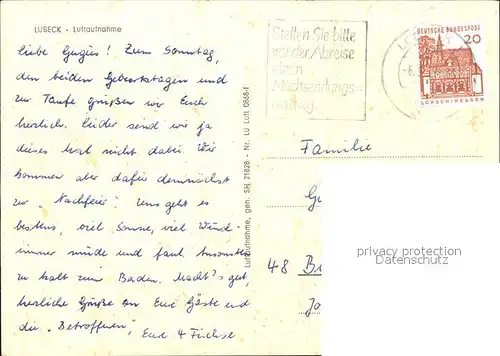 LÜBECK - Luftaufnahme
Liebe Gugüs! Zum Sonntag,
den beiden Geburtstagen und
zur Taufe grüßen wir Euch
herzlich. Leider sind wir ja
dieses Mal nicht dabei. Wir
kommen aber dafür demnächst
zur „Nachfeier". Uns geht es
bestens, viel Sonne, viel Wind -
immer müde und faul. Ansonsten
zu kalt zum Baden. Macht's gut,
herzliche Grüße an Eure Gäste und
die „Betroffenen", Eure 4 Füchse
Luftaufnahme, gen. SH, 21828 - Nr. LÜ Luft 0868-f
Stellen Sie bitte
vor der Abreise
einen
Nachsendungs-
antrag
DEUTSCHE BUNDESPOST
20
LORSCH/HESSEN
Familie
48
privacy protection
Datenschutz